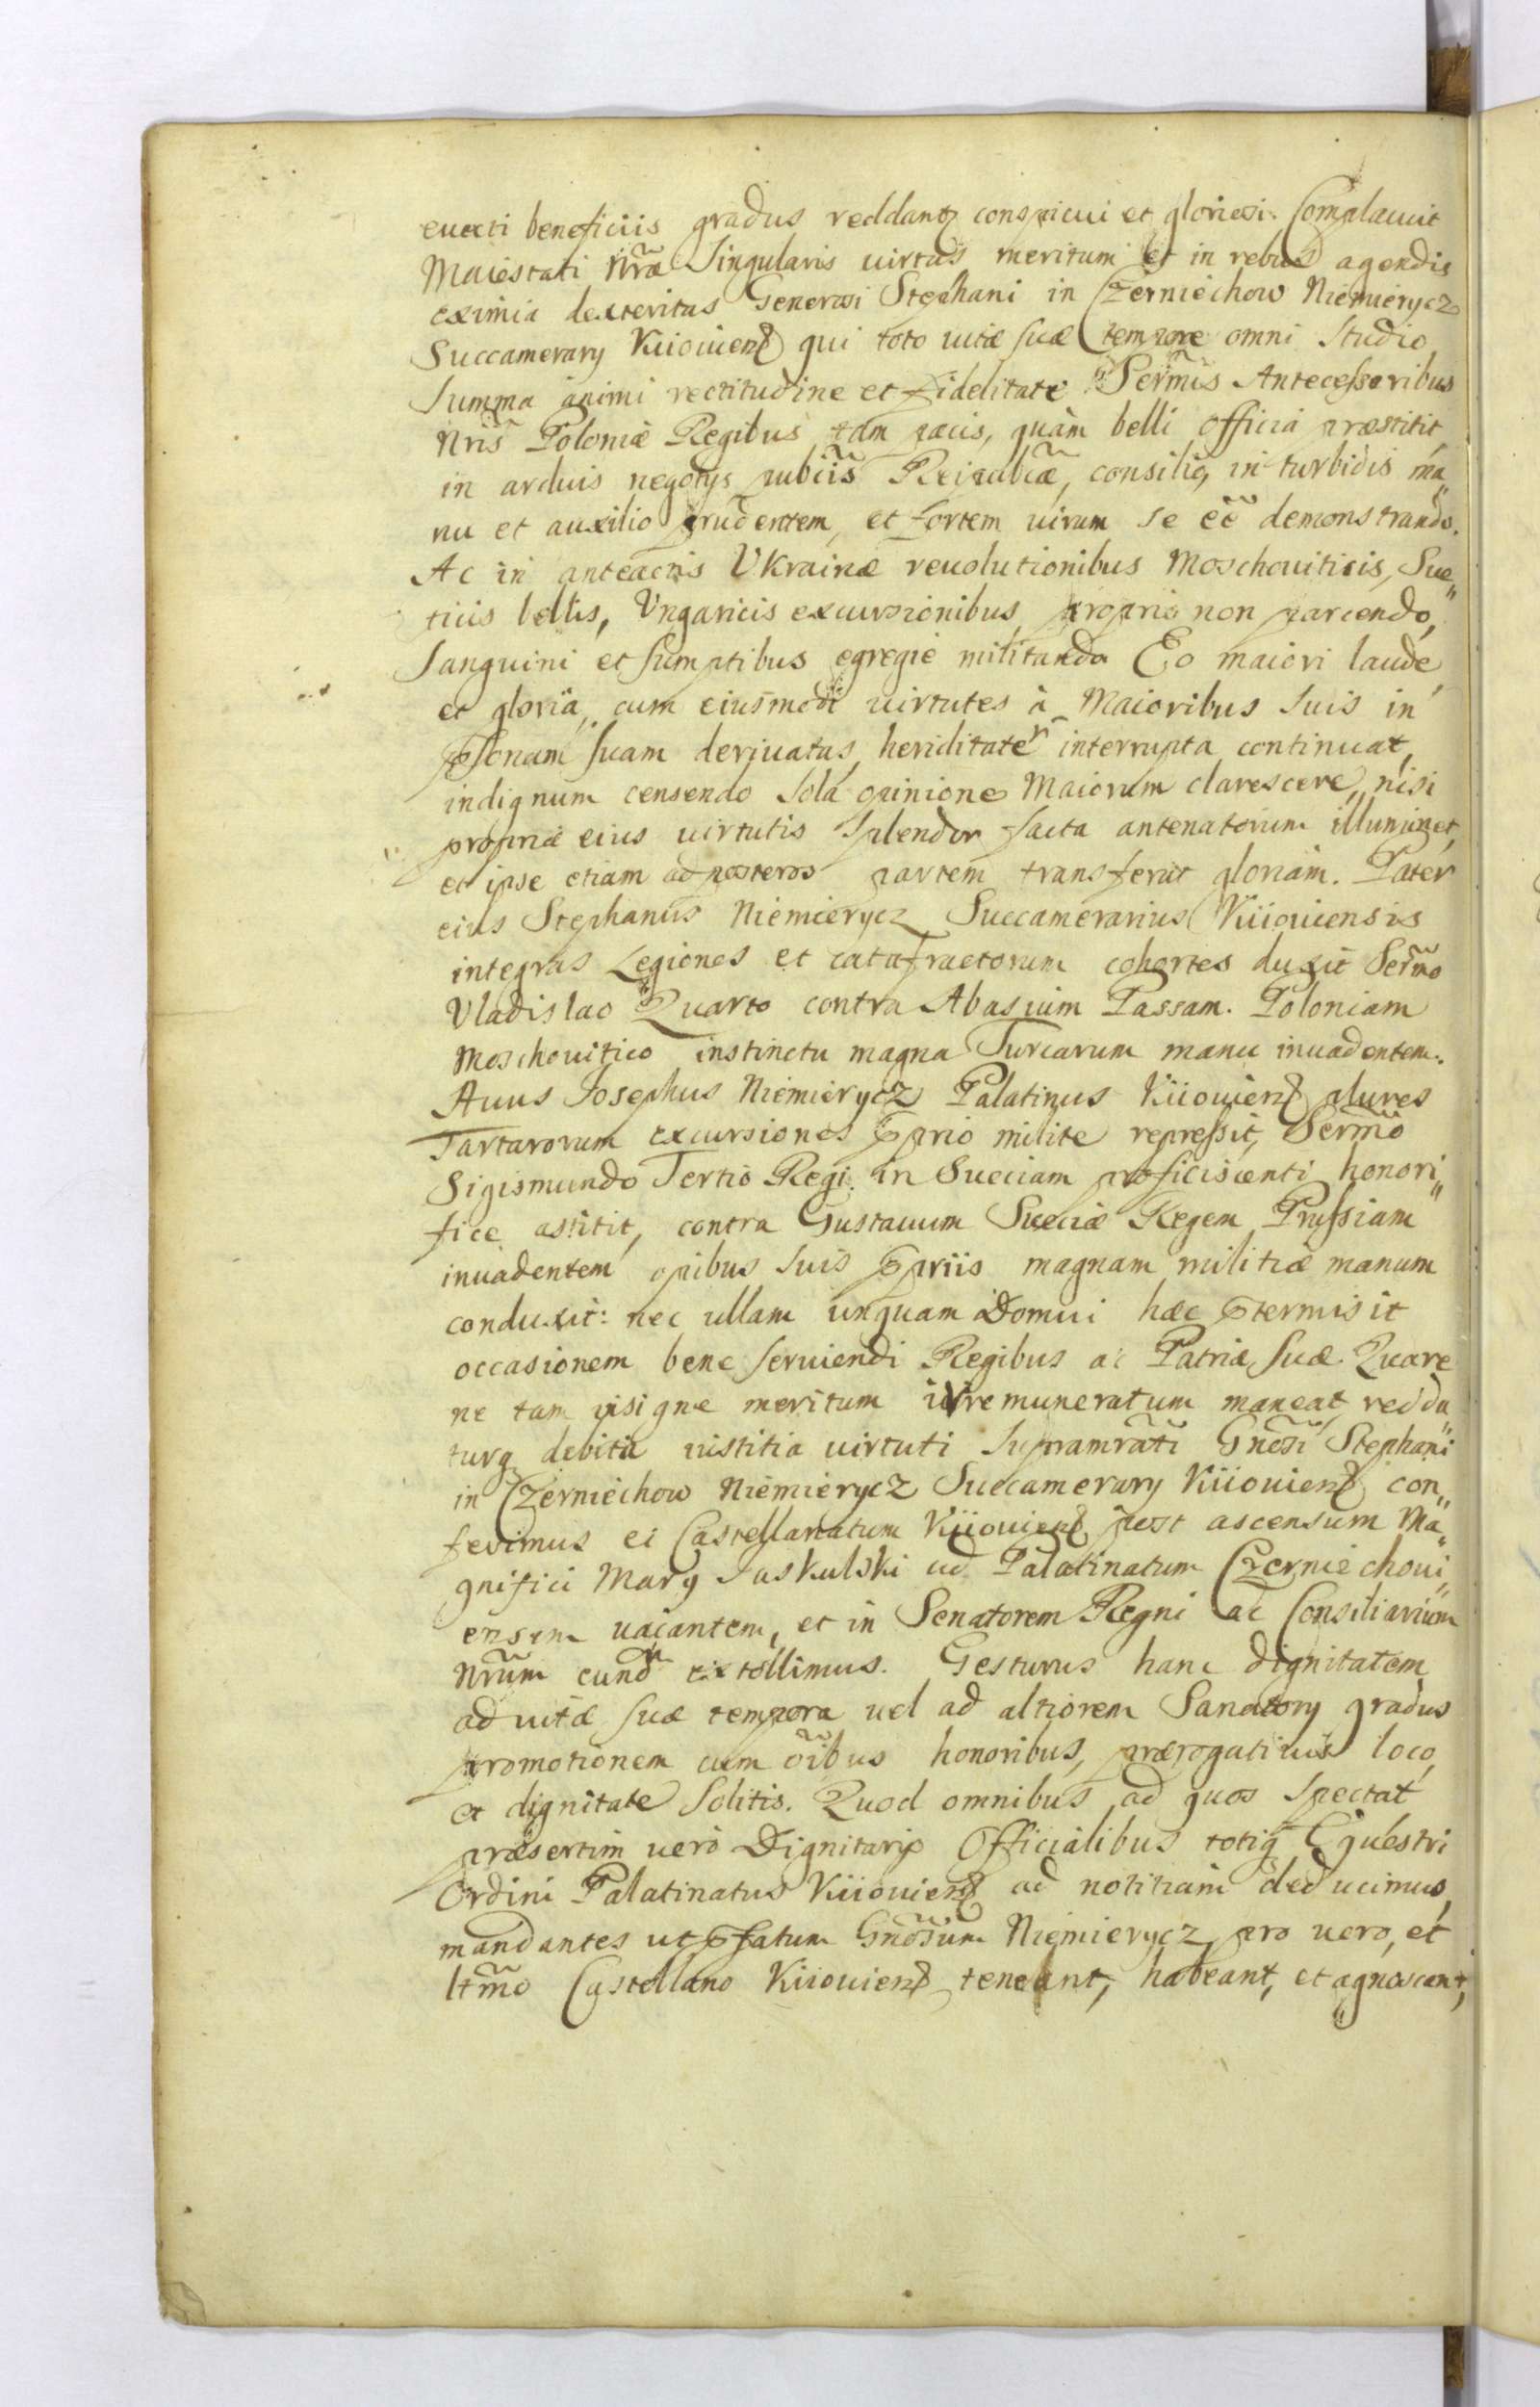 euecti beneficiis gradus reddantq conspicui et gloriosi. Complacuit
Maiestati Nrã Singularis uirtus meritum et in rebus agendis
eximia dexteritas Generosi Stephani in Czerniechow Niemierycz
Succamerary Kiiouiens qui toto uitæ suæ tempore omni studio
summa animi rectitudine et fidelitate Sermis Antecessoribus
Nris Poloniæ Regibus tam pacis, quàm belli officia præstitit
in arduis negotys publcis Reipublcæ, consilio, in turbidis ma„
nu et auxilio prudentem, et fortem uirum se eẽ demonstrando.
Ac in anteactis Ukrainæ reuolutionibus Moschouiticis, Sue„
ticis bellis, Ungaricis excursionibus proprio non parcendo,
sanguini et sumptibus egregiè militando Eo maiori laude
et gloria, cum eiusmodi uirtutes à Maioribus suis in
psonam suam deriuatas, heriditate interrupta continuat,
indignum censendo sola opinione Maiorum clarescere, nisi
propriæ eius uirtutis splendor facta antenatorum illuminet,
et ipse etiam ad posteros partem transferat gloriam. Pater
eius Stephanus Niemierycz Succamerarius Kiiouiensis
integras Legiones et catafractorum cohortes duxit Sermo
Vladislao Quarto contra Abasium Passam. Poloniam
Moschouitico instinctu magna Turcarum manu inuadentem.
Auus Josephus Niemierycz Palatinus Kiiouiens plures
Tartarorum excursiones pprio milite repressit, Sermo
Sigismundo Tertio Regi in Sueciam proficiscenti honori„
fice astitit, contra Gustauum Sueciæ Regem Prussiam
inuadentem opibus suis ppriis magnam militiæ manum
conduxit: nec ullam unquam Domui hæc ptermisit
occasionem bene seruiendi Regibus ac Patriæ suæ. Quare
ne tam insigne meritum irremuneratum maneat, redda„
turq debita iustitia uirtuti supramrati Gnosi Stephani
in Czerniechow Niemierycz Succamerary Kiiouiens con„
ferimus ei Castellanatum Kiiouiens post ascensum Ma„
gnifici Mary Jaskulski ad Palatinatum Czerniechoui„
ensem uacantem, et in Senatorem Regni ac Consiliarium
Nrum eund extollimus. Gesturus hanc dignitatem
ad uitæ suæ tempora uel ad altiorem Sanatory gradus
promotionem cum oibus honoribus, prærogatiuis loco,
et dignitate solitis. Quod omnibus, ad quos spectat
præsertim uerò Dignitarijs Officialibus totiq Equestri
Ordini Palatinatus Kiiouiens ad notitiam deducimus,
mandantes ut pfatum Gnosum Niemierycz pro uero, et
ltmo Castellano Kiiouiens teneant, habeant, et agnoscant,